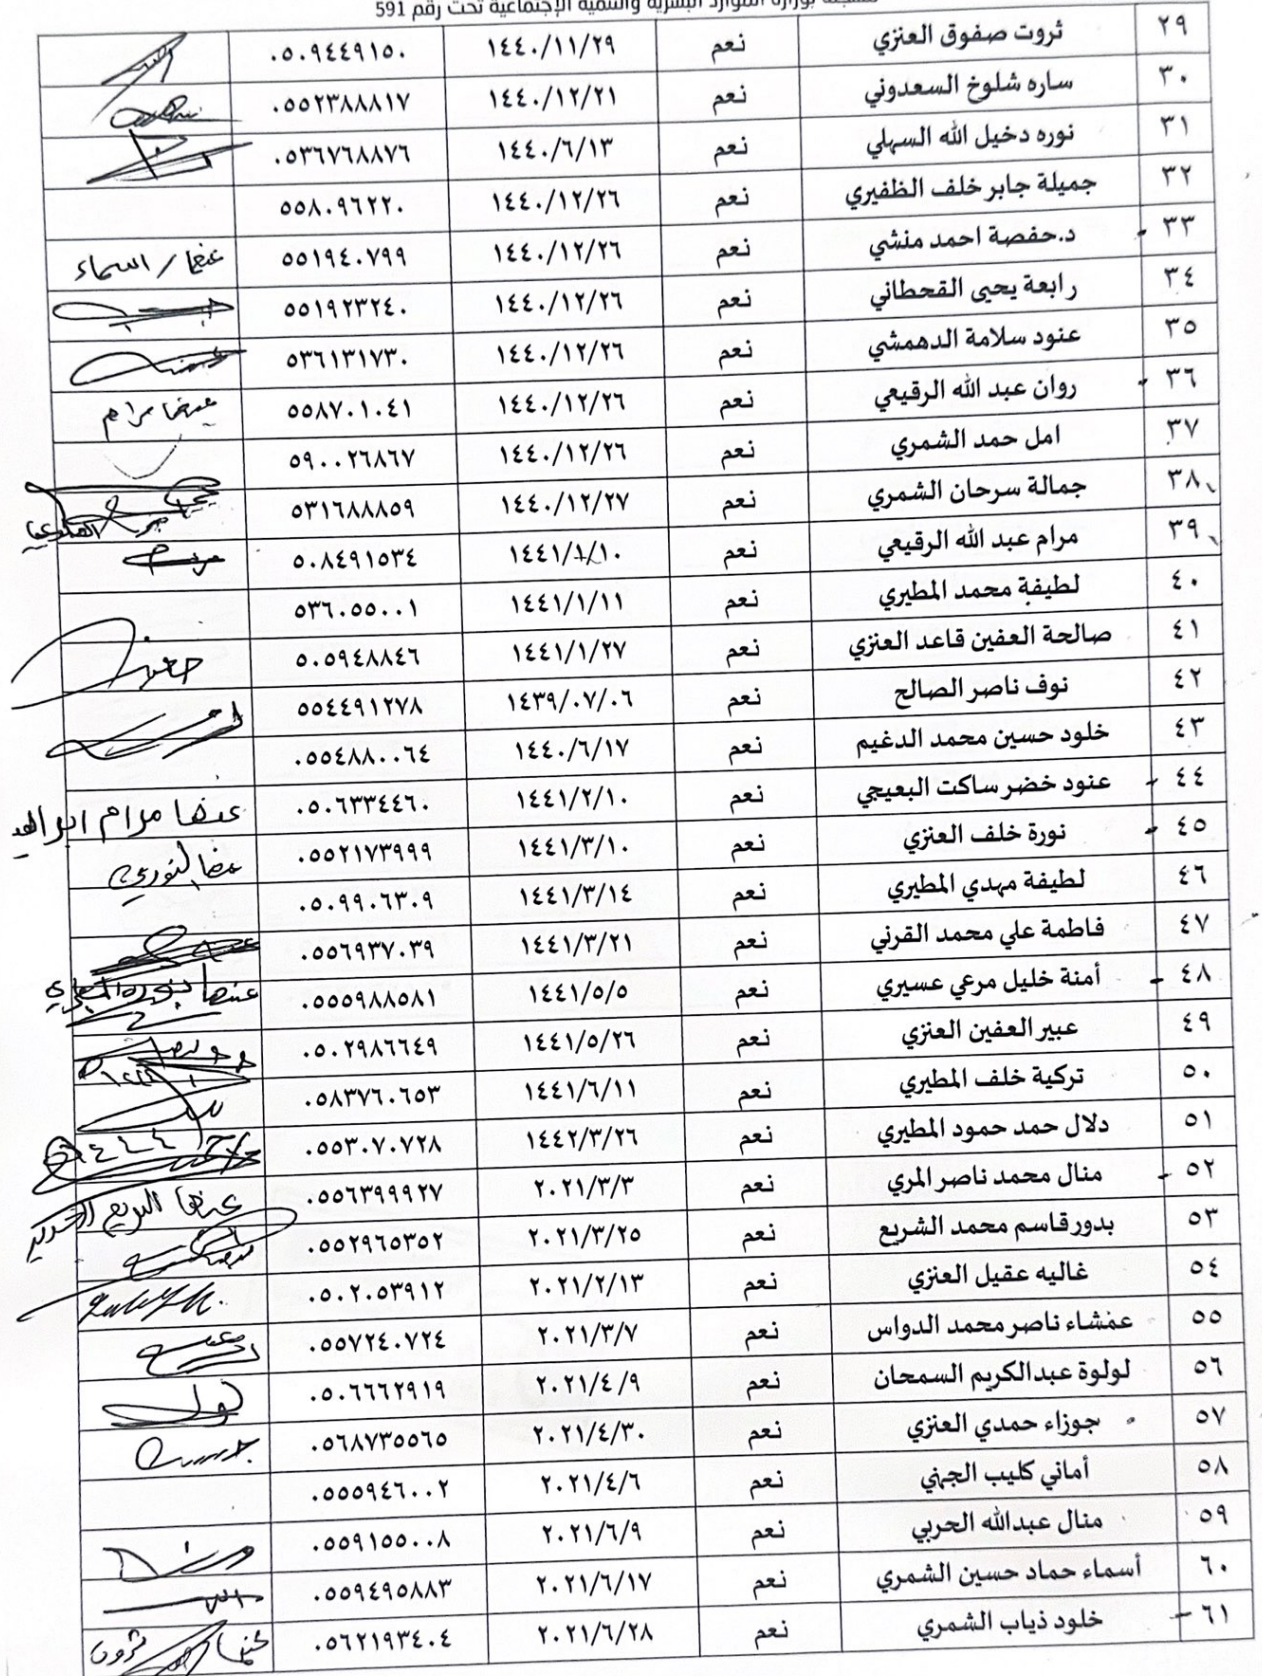 مسجلة بوزارة الموارد البشرية والتنمية الإجتماعية تحت رقم 591
٢٩ ثروت صفوق العنزي نعم ١٤٤٠/١١/٢٩ ٠٥٠٩٤٤٩١٥٠
٣٠ ساره شلوخ السعدوني نعم ١٤٤٠/١٢/٢١ ٠٥٥٢٣٨٨٨١٧
٣١ نوره دخيل الله السهلي نعم ١٤٤٠/٦/١٣ ٠٥٣٦٧٦٨٨٧٦
٣٢ جميلة جابر خلف الظفيري نعم ١٤٤٠/١٢/٢٦ ٥٥٨٠٩٦٢٢٠
٣٣ د.حفصة احمد منشي نعم ١٤٤٠/١٢/٢٦ ٥٥١٩٤٠٧٩٩ عنها / اسماء
٣٤ رابعة يحيى القحطاني نعم ١٤٤٠/١٢/٢٦ ٥٥١٩٢٣٢٤٠
٣٥ عنود سلامة الدهمشي نعم ١٤٤٠/١٢/٢٦ ٥٣٦١٣١٧٣٠
٣٦ روان عبد الله الرقيعي نعم ١٤٤٠/١٢/٢٦ ٥٥٨٧٠١٠٤١ عنها مرام
٣٧ امل حمد الشمري نعم ١٤٤٠/١٢/٢٦ ٥٩٠٠٢٦٨٦٧
٣٨ جمالة سرحان الشمري نعم ١٤٤٠/١٢/٢٧ ٥٣١٦٨٨٨٥٩
٣٩ مرام عبد الله الرقيعي نعم ١٤٤١/١/١٠ ٥٠٨٤٩١٥٣٤ مرام
٤٠ لطيفة محمد المطيري نعم ١٤٤١/١/١١ ٥٣٦٠٥٥٠٠١
٤١ صالحة العفين قاعد العنزي نعم ١٤٤١/١/٢٧ ٥٠٥٩٤٨٨٤٦
٤٢ نوف ناصر الصالح نعم ١٤٣٩/٠٧/٠٦ ٥٥٤٤٩١٢٧٨
٤٣ خلود حسين محمد الدغيم نعم ١٤٤٠/٦/١٧ ٠٥٥٤٨٨٠٠٦٤
٤٤ عنود خضر ساكت البعيجي نعم ١٤٤١/٢/١٠ ٠٥٠٦٣٣٤٤٦٠ عنها مرام ابراهيم
٤٥ نورة خلف العنزي نعم ١٤٤١/٣/١٠ ٠٥٥٢١٧٣٩٩٩
٤٦ لطيفة مهدي المطيري نعم ١٤٤١/٣/١٤ ٠٥٠٩٩٠٦٣٠٩
٤٧ فاطمة علي محمد القرني نعم ١٤٤١/٣/٢١ ٠٥٥٦٩٣٧٠٣٩
٤٨ أمنة خليل مرعي عسيري نعم ١٤٤١/٥/٥ ٠٥٥٥٩٨٨٥٨١ عنها
٤٩ عبير العفين العنزي نعم ١٤٤١/٥/٢٦ ٠٥٠٢٩٨٦٦٤٩
٥٠ تركية خلف المطيري نعم ١٤٤١/٦/١١ ٠٥٨٣٧٦٠٦٥٣
٥١ دلال حمد حمود المطيري نعم ١٤٤٢/٣/٢٦ ٠٥٥٣٠٧٠٧٢٨
٥٢ منال محمد ناصر المري نعم ٢٠٢١/٣/٣ ٠٥٥٦٣٩٩٩٢٧ عنها
٥٣ بدور قاسم محمد الشريع نعم ٢٠٢١/٣/٢٥ ٠٥٥٢٩٦٥٣٥٢
٥٤ غاليه عقيل العنزي نعم ٢٠٢١/٢/١٣ ٠٥٠٢٠٥٣٩١٢
٥٥ عمشاء ناصر محمد الدواس نعم ٢٠٢١/٣/٧ ٠٥٥٧٢٤٠٧٢٤
٥٦ لولوة عبدالكريم السمحان نعم ٢٠٢١/٤/٩ ٠٥٠٦٦٦٢٩١٩
٥٧ جوزاء حمدي العنزي نعم ٢٠٢١/٤/٣٠ ٠٥٦٨٧٣٥٥٦٥
٥٨ أماني كليب الجهني نعم ٢٠٢١/٤/٦ ٠٥٥٥٩٤٦٠٠٢
٥٩ منال عبدالله الحربي نعم ٢٠٢١/٦/٩ ٠٥٥٩١٥٥٠٠٨
٦٠ أسماء حماد حسين الشمري نعم ٢٠٢١/٦/١٧ ٠٥٥٩٤٩٥٨٨٣
٦١ خلود ذياب الشمري نعم ٢٠٢١/٦/٢٨ ٠٥٦٢١٩٣٤٠٤ عنها ثروت